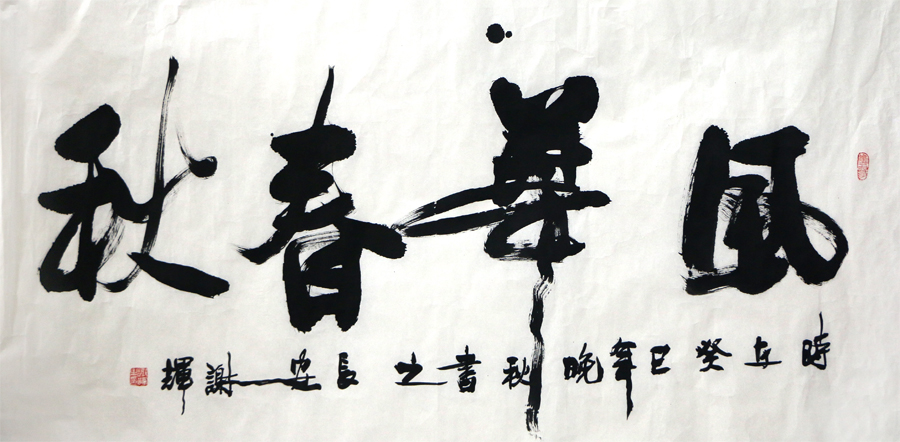 風華春秋
時在癸巳年晚秋書之長安謝輝